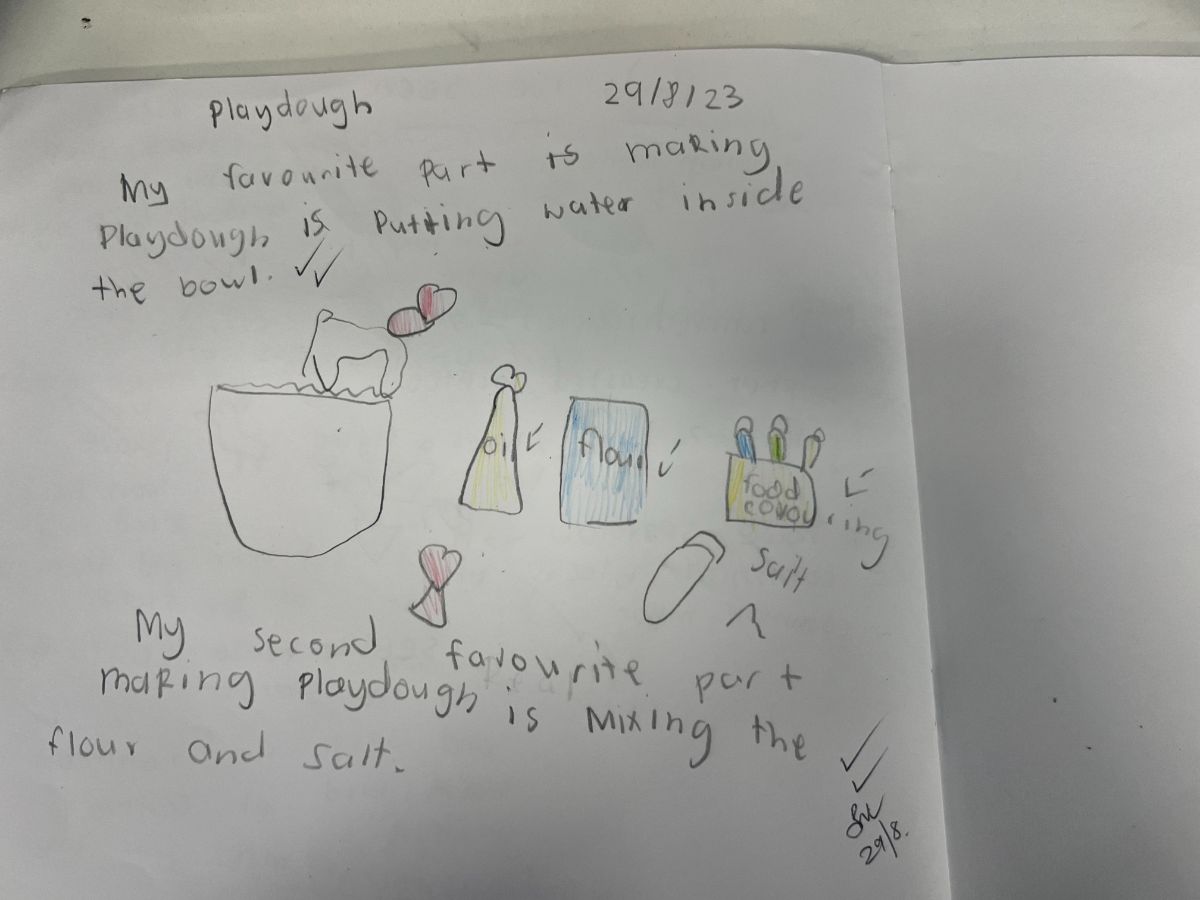 playdough 29/8/23
My favourite part is making
Playdough is Putting water inside
the bowl.
oil
flour
food
colou
ring
Salt
My second favourite part
making playdough is Mixing the
flour and salt.
29/8.